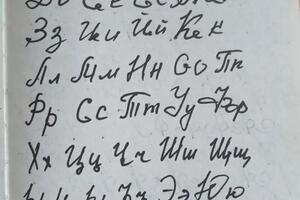 Зз Ии Йй Кк К
Лл Мм Нн Оо Пп
Рр Сс Тт Уу Фф
Хх Цц Чч Шш Щщ
Ээ Юю